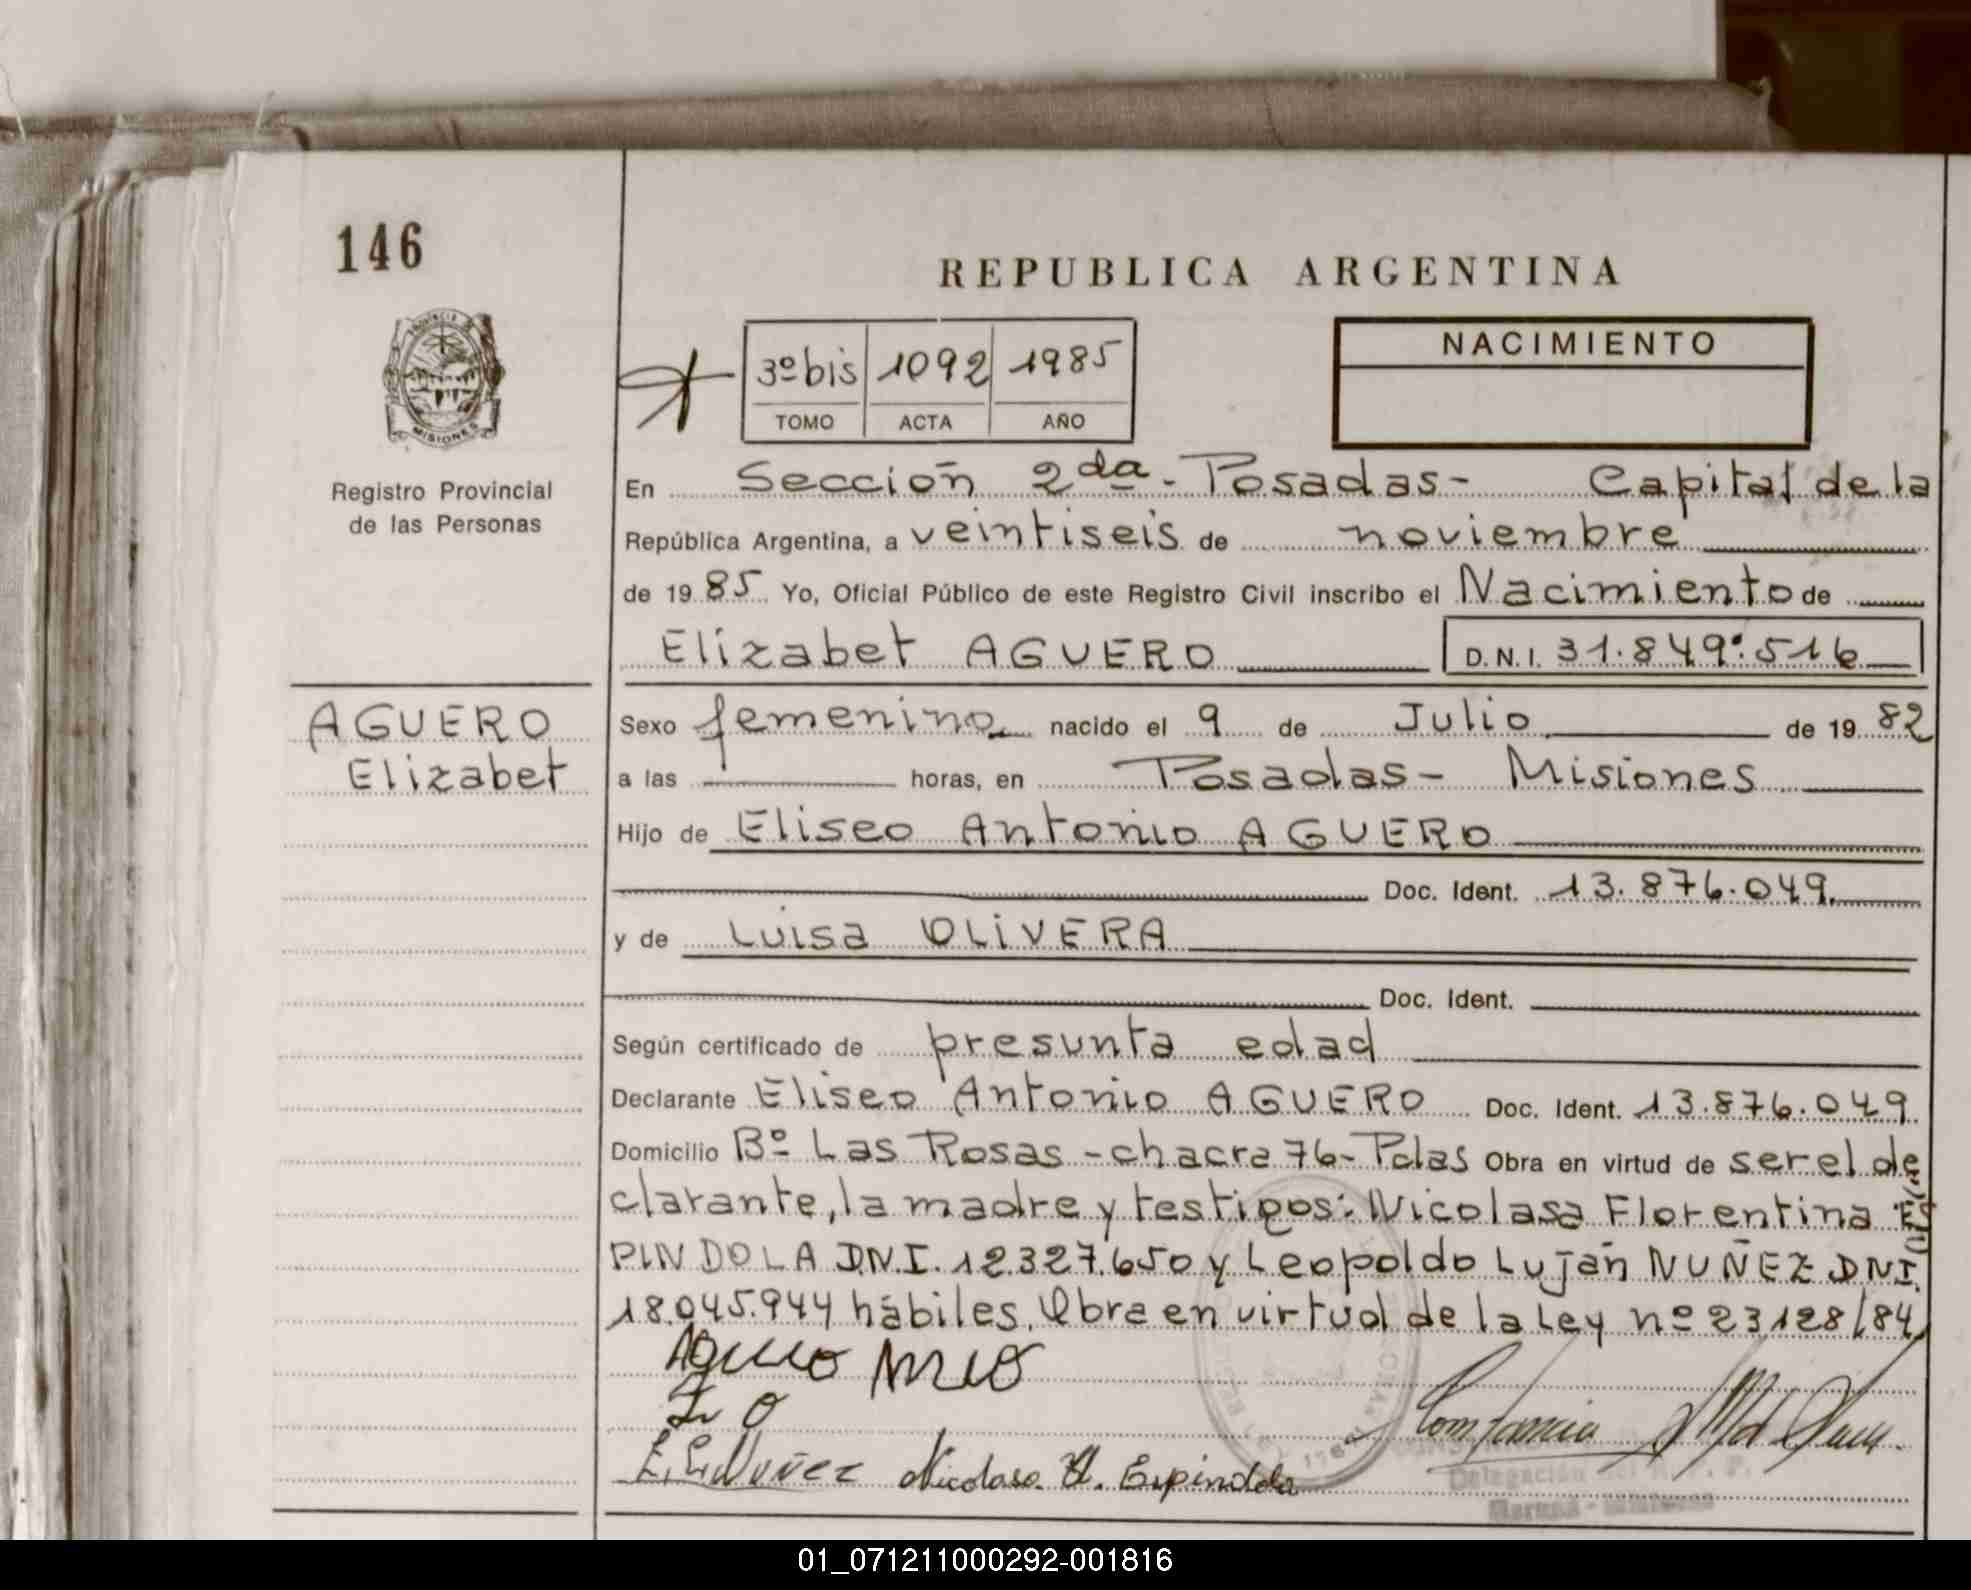 146
REPUBLICA ARGENTINA
PROVINCIA DE
MISIONES
Registro Provincial
de las Personas
3º bis 1092 1985
TOMO ACTA AÑO
NACIMIENTO
En Sección 2da - Posadas - Capital de la
República Argentina, a veintiseis de noviembre
de 1985 Yo, Oficial Público de este Registro Civil inscribo el Nacimiento de
Elizabet AGUERO D.N.I. 31.849.516
AGUERO
Elizabet
Sexo femenino nacido el 9 de Julio de 1982
a las horas, en Posadas - Misiones
Hijo de Eliseo Antonio AGUERO
Doc. Ident. 13.876.049
y de Luisa OLIVERA
Doc. Ident.
Según certificado de presunta edad
Declarante Eliseo Antonio AGUERO Doc. Ident. 13.876.049
Domicilio Bº Las Rosas - chacra 76 - Pdas Obra en virtud de ser el de
clarante, la madre y testigos: Nicolasa Florentina ES
PINDOLA D.N.I. 12.327.650 y Leopoldo Luján NUÑEZ DNI.
18.045.944 hábiles. Obra en virtud de la Ley nº 23128/84
Aguero
L O
Nuñez Nicolasa Espindola
Delegación del R. P. P.
01_071211000292-001816